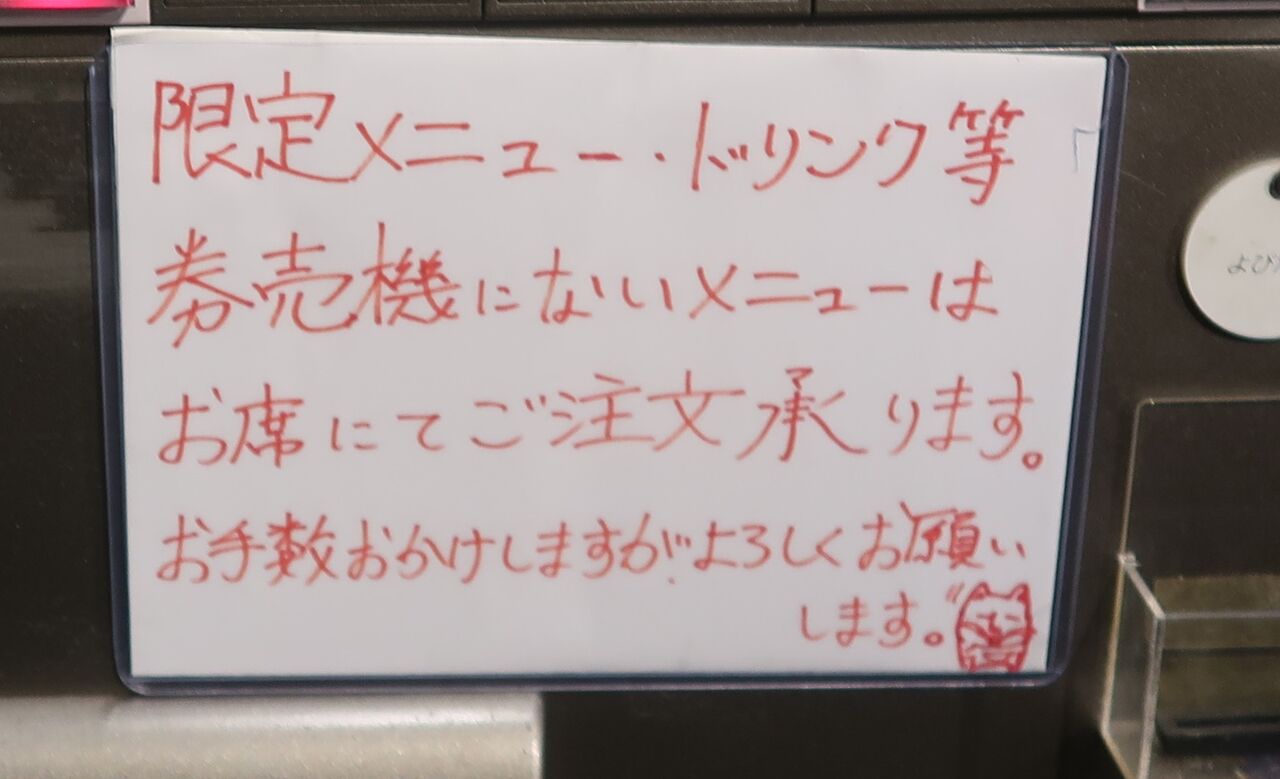 限定メニュー・ドリンク等
券売機にないメニューは
お席にてご注文承ります。
お手数おかけしますがよろしくお願い
します。
よび